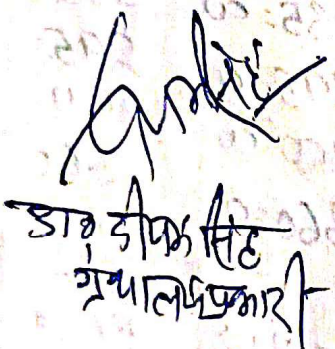 डॉ० दीपक सिंह
ग्रंथालय प्रभारी